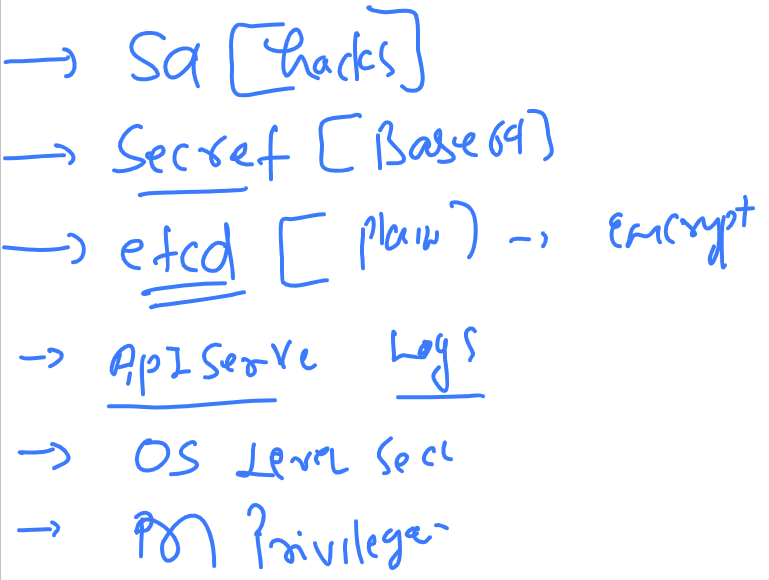 → Sa [hacks]
→ Secret [Base64]
→ etcd [Plain] → Encrypt
→ ApI Serve Logs
→ OS Level Sec
→ Privilege